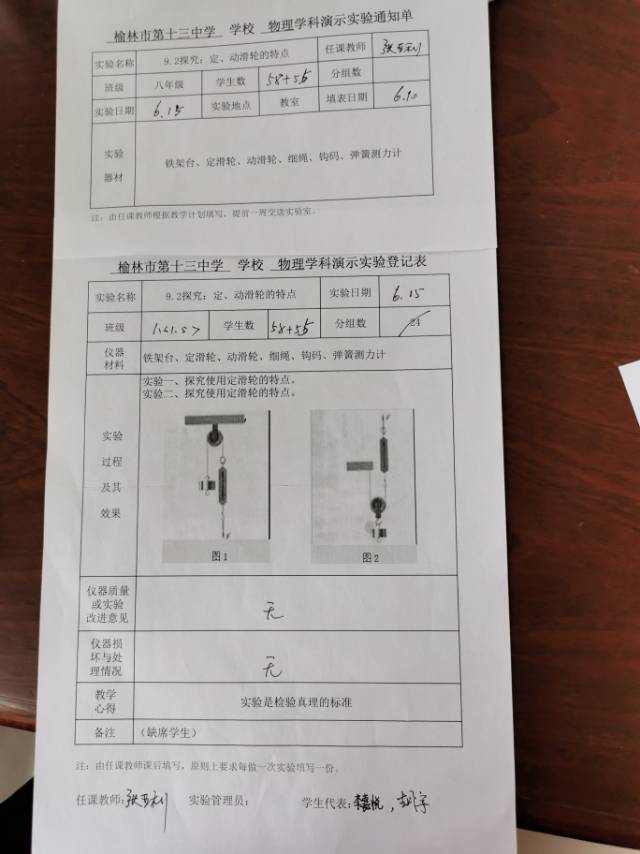 榆林市第十三中学 学校 物理学科演示实验通知单
实验名称 9.2探究：定、动滑轮的特点 任课教师
班级 八年级 学生数 58+56 分组数
实验日期 6.15 实验地点 教室 填表日期 6.10
实验
器材
铁架台、定滑轮、动滑轮、细绳、钩码、弹簧测力计
注：由任课教师根据教学计划填写，提前一周交送实验室。
榆林市第十三中学 学校 物理学科演示实验登记表
实验名称 9.2探究：定、动滑轮的特点 实验日期 6.15
班级 学生数 58+56 分组数 24
仪器
材料
铁架台、定滑轮、动滑轮、细绳、钩码、弹簧测力计
实验
过程
及其
效果
实验一、探究使用定滑轮的特点。
实验二、探究使用定滑轮的特点。
图1 图2
仪器质量
或实验
改进意见
无
仪器损
坏与处
理情况
无
教学
心得
实验是检验真理的标准
备注 （缺席学生）
注：由任课教师课后填写，原则上要求每做一次实验填写一份。
任课教师： 实验管理员： 学生代表：